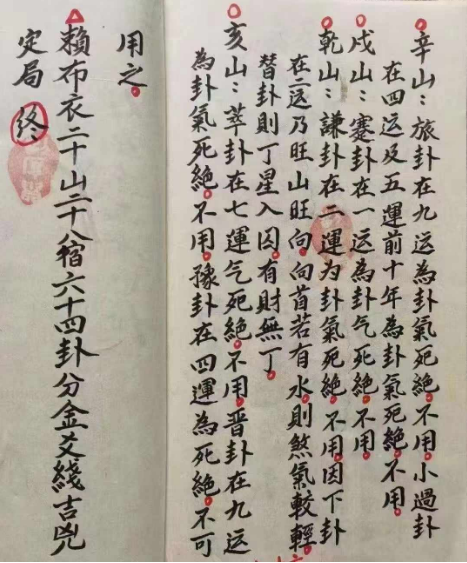 辛山：旅卦在九运為卦氣死絶。不用。小過卦
在四运及五運前十年為卦氣死絶。不用。
戌山：蹇卦在一运為卦气死絶。不用。
乾山：謙卦在二運为卦氣死絶。不用。因下卦
在二运乃旺山旺向。向首若有水。則煞氣較輕。
替卦則丁星入囚。有財無丁。
亥山：萃卦在七運气死絶。不用。晋卦在九运
為卦氣死絶。不用。豫卦在四運為死絶。不可
用之。
賴布衣二十山二十八宿六十四卦分金爻綫吉兇
定局 終